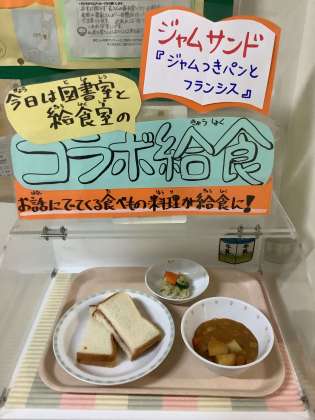 ジャムサンド
『ジャムつきパンと
フランシス』
今日は図書室と
給食室の
コラボ給食
お話にでてくる食べもの料理が給食に!